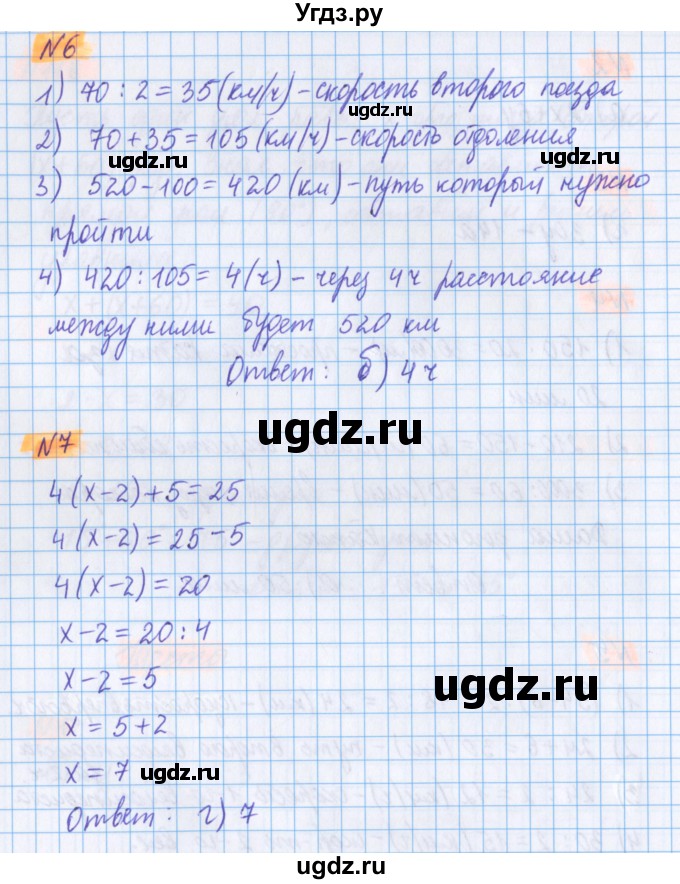 Угдз.ру
№6
1) 70 : 2 = 35 (км/ч) – скорость второго поезда
ugdz.ru
2) 70 + 35 = 105 (км/ч) – скорость отдоления
ugdz.ru ugdz.ru
3) 520 – 100 = 420 (км) – путь который нужно
пройти
4) 420 : 105 = 4 (ч) – через 4 ч расстояние
между ними будет 520 км
Ответ: б) 4 ч
ugdz.ru
№7
4 (x – 2) + 5 = 25
4 (x – 2) = 25 – 5
4 (x – 2) = 20
x – 2 = 20 : 4
x – 2 = 5
ugdz.ru
x = 5 + 2
x = 7
ugdz.ru ugdz.ru
Ответ: г) 7
ugdz.ru